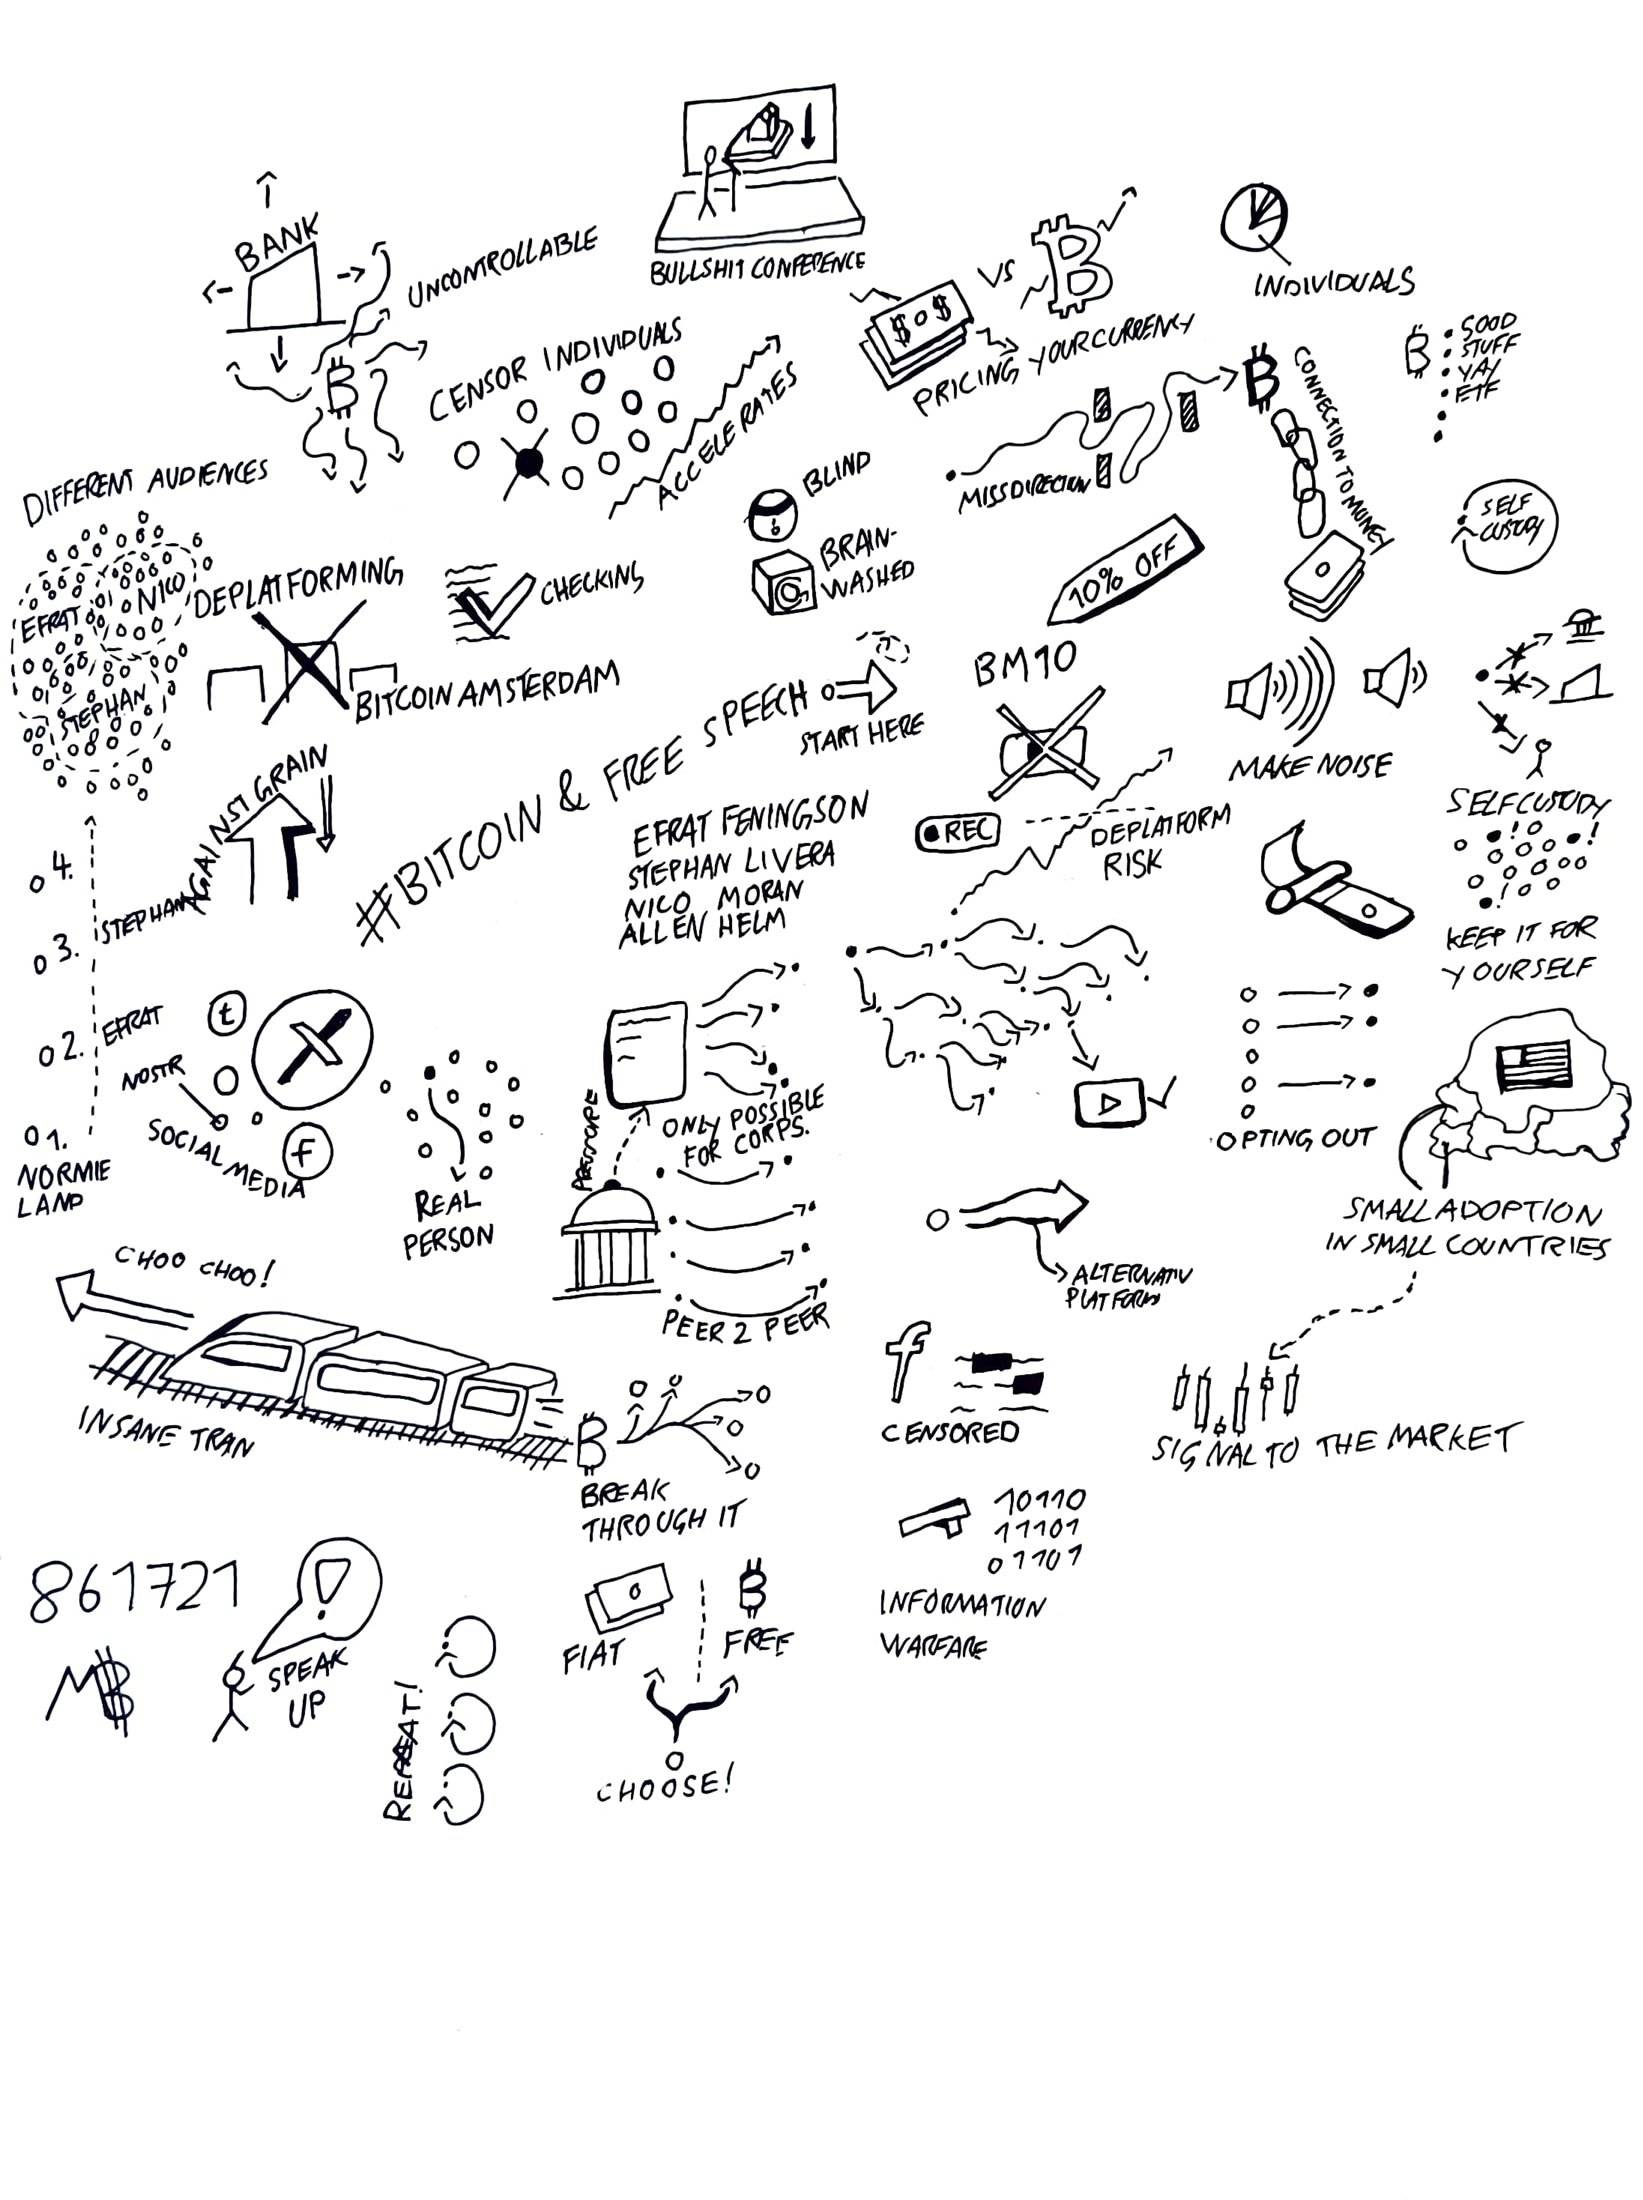 BULLSHIT CONFERENCE
BANK
UNCONTROLLABLE
VS
PRICING YOUR CURRENCY
INDIVIDUALS
CENSOR INDIVIDUALS
ACCELERATES
MISSDIRECTION
CONNECTION TO MONEY
GOOD
STUFF
YAY
ETF
DIFFERENT AUDIENCES
EFRAT
NICO
STEPHAN
DEPLATFORMING
CHECKING
BLIND
BRAIN-
WASHED
10% OFF
SELF
CUSTODY
BITCOIN AMSTERDAM
#BITCOIN & FREE SPEECH
START HERE
BM10
MAKE NOISE
SELFCUSTODY
KEEP IT FOR
YOURSELF
EFRAT FENINGSON
STEPHAN LIVERA
NICO MORAN
ALLEN HELM
REC
DEPLATFORM
RISK
4.
3.
STEPHAN AGAINST GRAIN
2.
EFRAT
1.
NORMIE
LAND
t
NOSTR
SOCIAL MEDIA
f
REAL
PERSON
ONLY POSSIBLE
FOR CORPS.
PEER 2 PEER
OPTING OUT
SMALL ADOPTION
IN SMALL COUNTRIES
ALTERNATIV
PLATFORM
CHOO CHOO!
INSANE TRAN
BREAK
THROUGH IT
f
CENSORED
SIGNAL TO THE MARKET
10110
11101
01101
INFORMATION
WARFARE
861721
SPEAK
UP
REPEAT!
FIAT
FREE
CHOOSE!